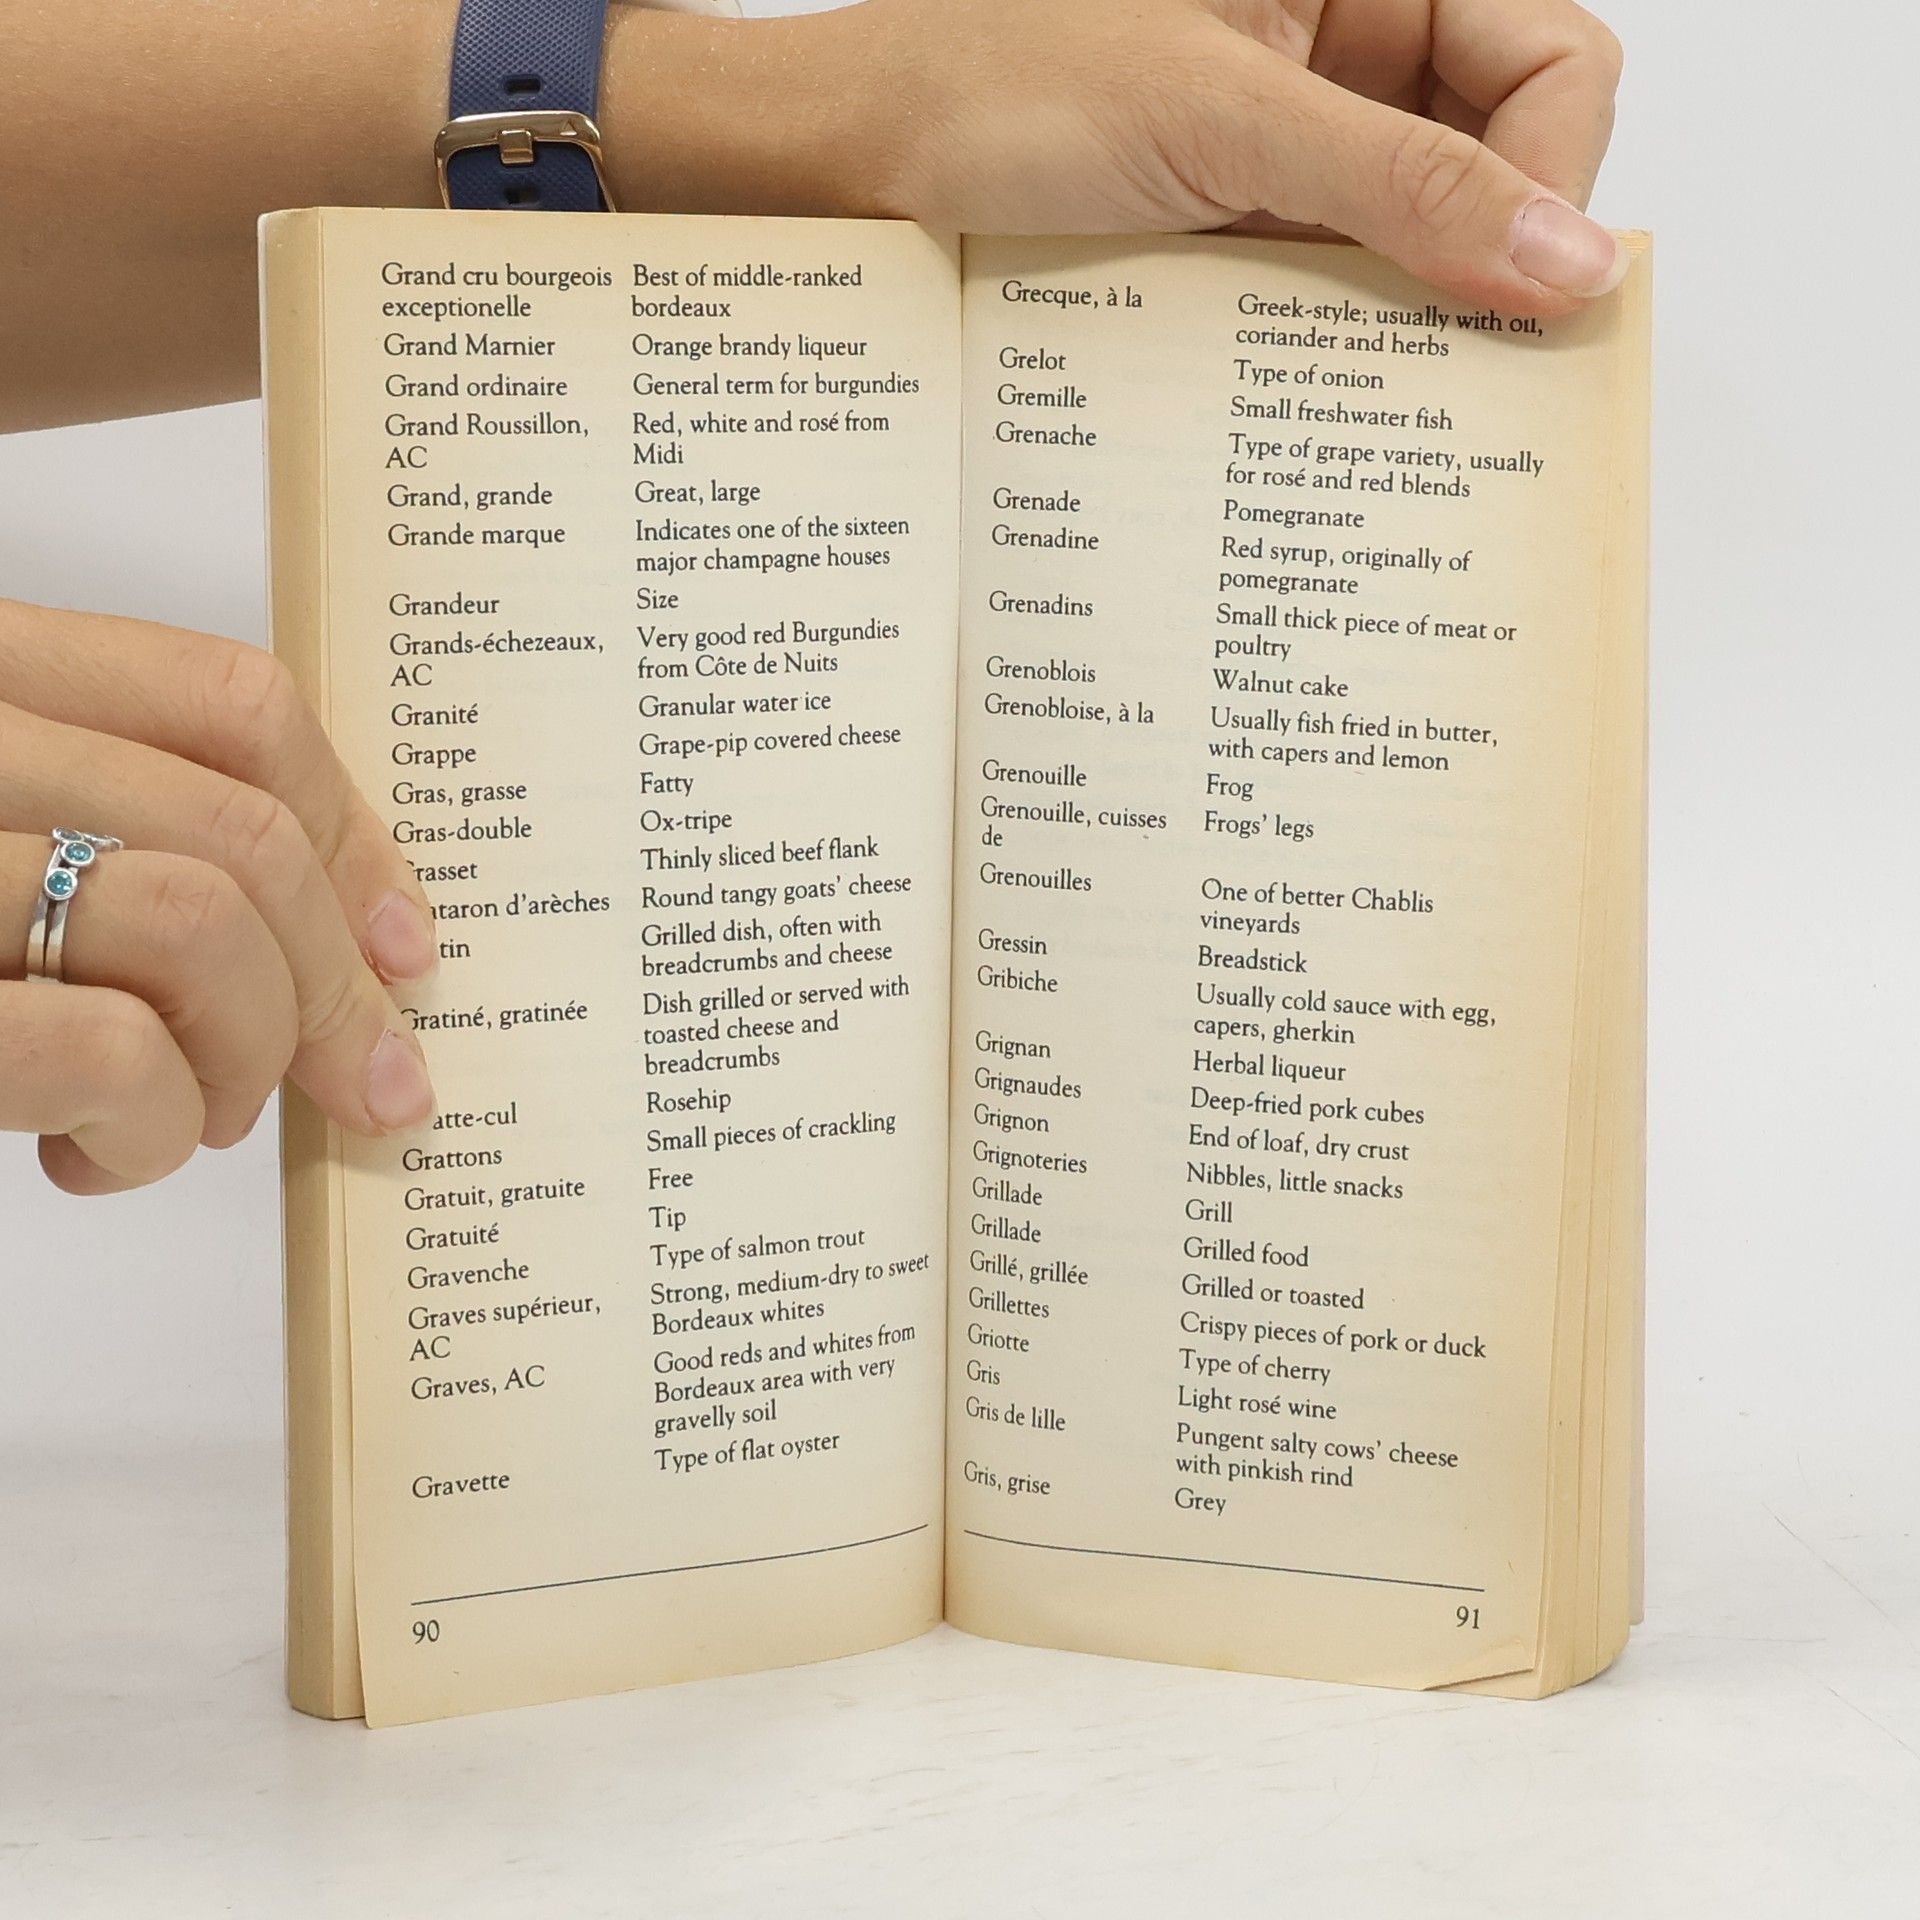 Grand cru bourgeois Best of middle-ranked
exceptionelle bordeaux
Grand Marnier Orange brandy liqueur
Grand ordinaire General term for burgundies
Grand Roussillon, Red, white and rosé from
AC Midi
Grand, grande Great, large
Grande marque Indicates one of the sixteen
major champagne houses
Grandeur Size
Grands-échezeaux, Very good red Burgundies
AC from Côte de Nuits
Granité Granular water ice
Grappe Grape-pip covered cheese
Gras, grasse Fatty
Gras-double Ox-tripe
rasset Thinly sliced beef flank
taron d'arèches Round tangy goats' cheese
tin Grilled dish, often with
breadcrumbs and cheese
Gratiné, gratinée Dish grilled or served with
toasted cheese and
breadcrumbs
atte-cul Rosehip
Grattons Small pieces of crackling
Gratuit, gratuite Free
Gratuité Tip
Gravenche Type of salmon trout
Graves supérieur, Strong, medium-dry to sweet
AC Bordeaux whites
Graves, AC Good reds and whites from
Bordeaux area with very
gravelly soil
Gravette Type of flat oyster
90
Grecque, à la Greek-style; usually with oil,
coriander and herbs
Grelot Type of onion
Gremille Small freshwater fish
Grenache Type of grape variety, usually
for rosé and red blends
Grenade Pomegranate
Grenadine Red syrup, originally of
pomegranate
Grenadins Small thick piece of meat or
poultry
Grenoblois Walnut cake
Grenobloise, à la Usually fish fried in butter,
with capers and lemon
Grenouille Frog
Grenouille, cuisses Frogs' legs
de
Grenouilles One of better Chablis
vineyards
Gressin Breadstick
Gribiche Usually cold sauce with egg,
capers, gherkin
Grignan Herbal liqueur
Grignaudes Deep-fried pork cubes
Grignon End of loaf, dry crust
Grignoteries Nibbles, little snacks
Grillade Grill
Grillade Grilled food
Grillé, grillée Grilled or toasted
Grillettes Crispy pieces of pork or duck
Griotte Type of cherry
Gris Light rosé wine
Gris de lille Pungent salty cows' cheese
with pinkish rind
Gris, grise Grey
91